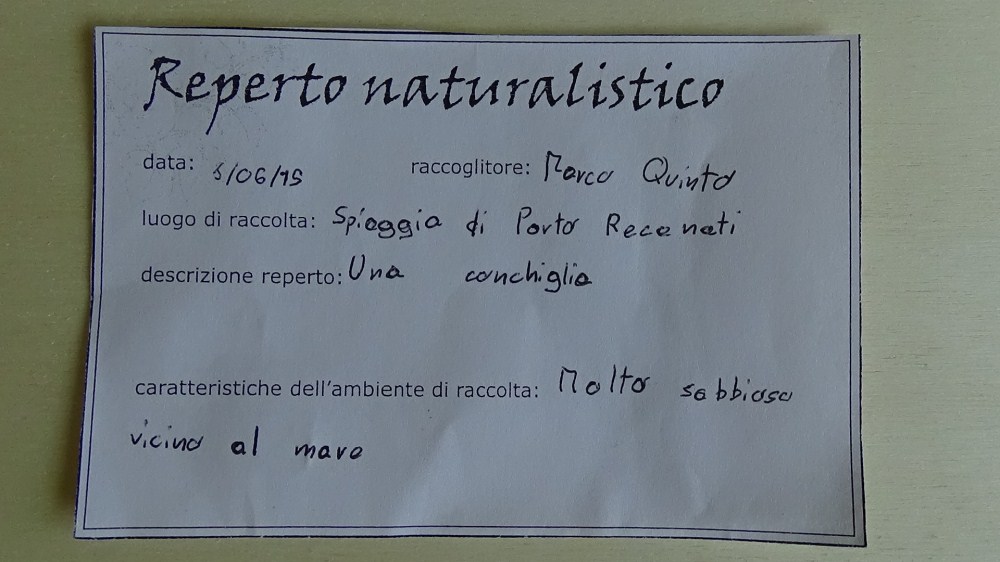 Reperto naturalistico
data: 5/06/15 raccoglitore: Marco Quinto
luogo di raccolta: Spiaggia di Porto Recanati
descrizione reperto: Una conchiglia
caratteristiche dell'ambiente di raccolta: Molto sabbioso
vicino al mare